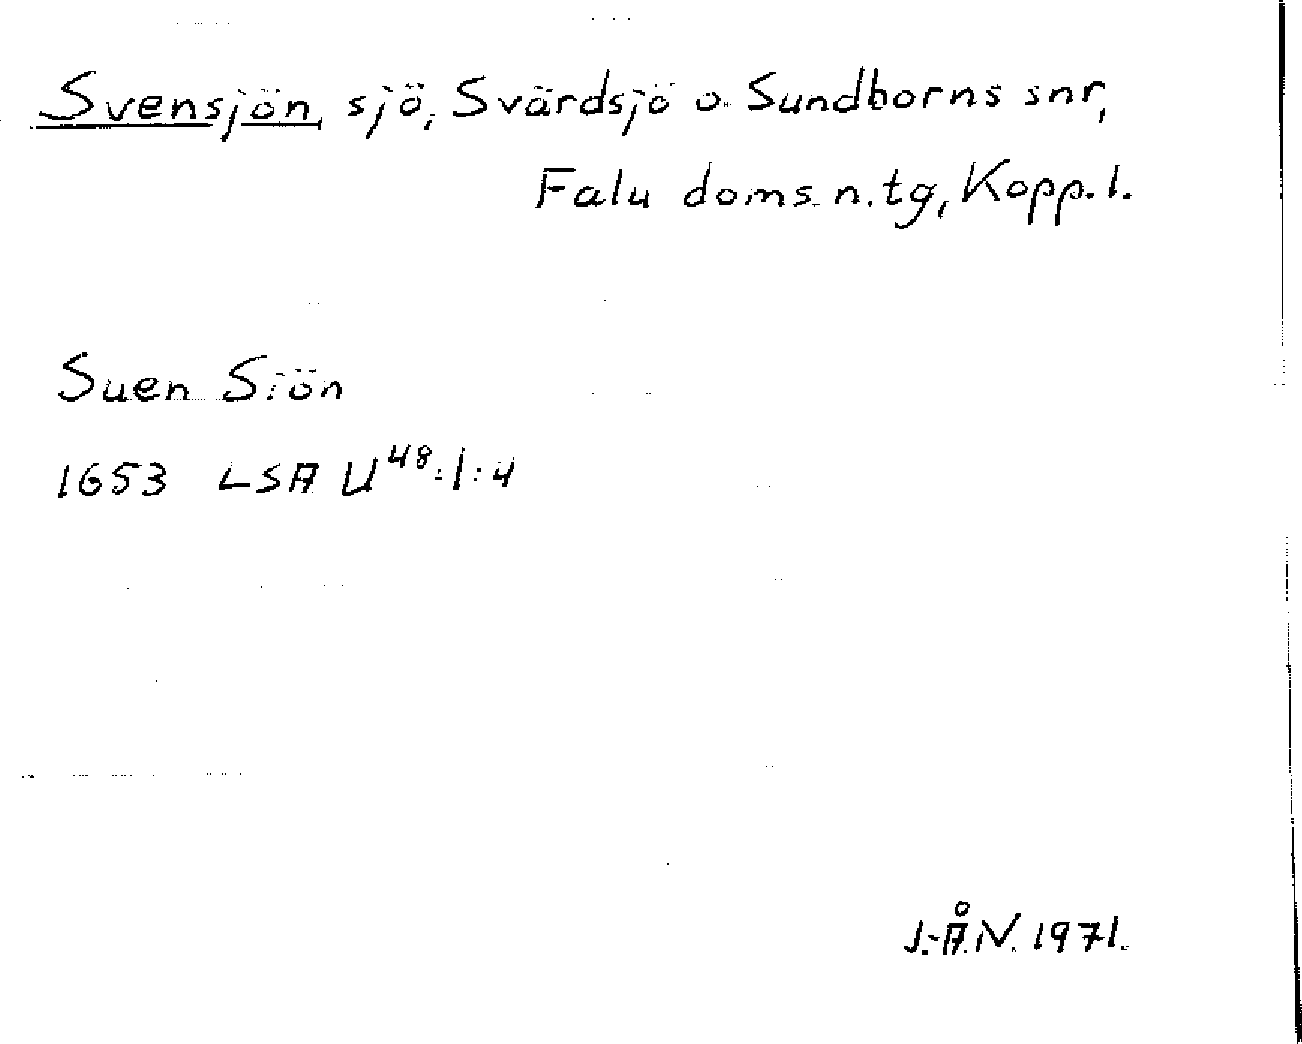 Svensjön, sjö, Svärdsjö o. Sundborns snr,
Falu doms. n. tg, Kopp. l.
Suen Siön
1653 LSA U48:1:4
J.-Å.N. 1971.